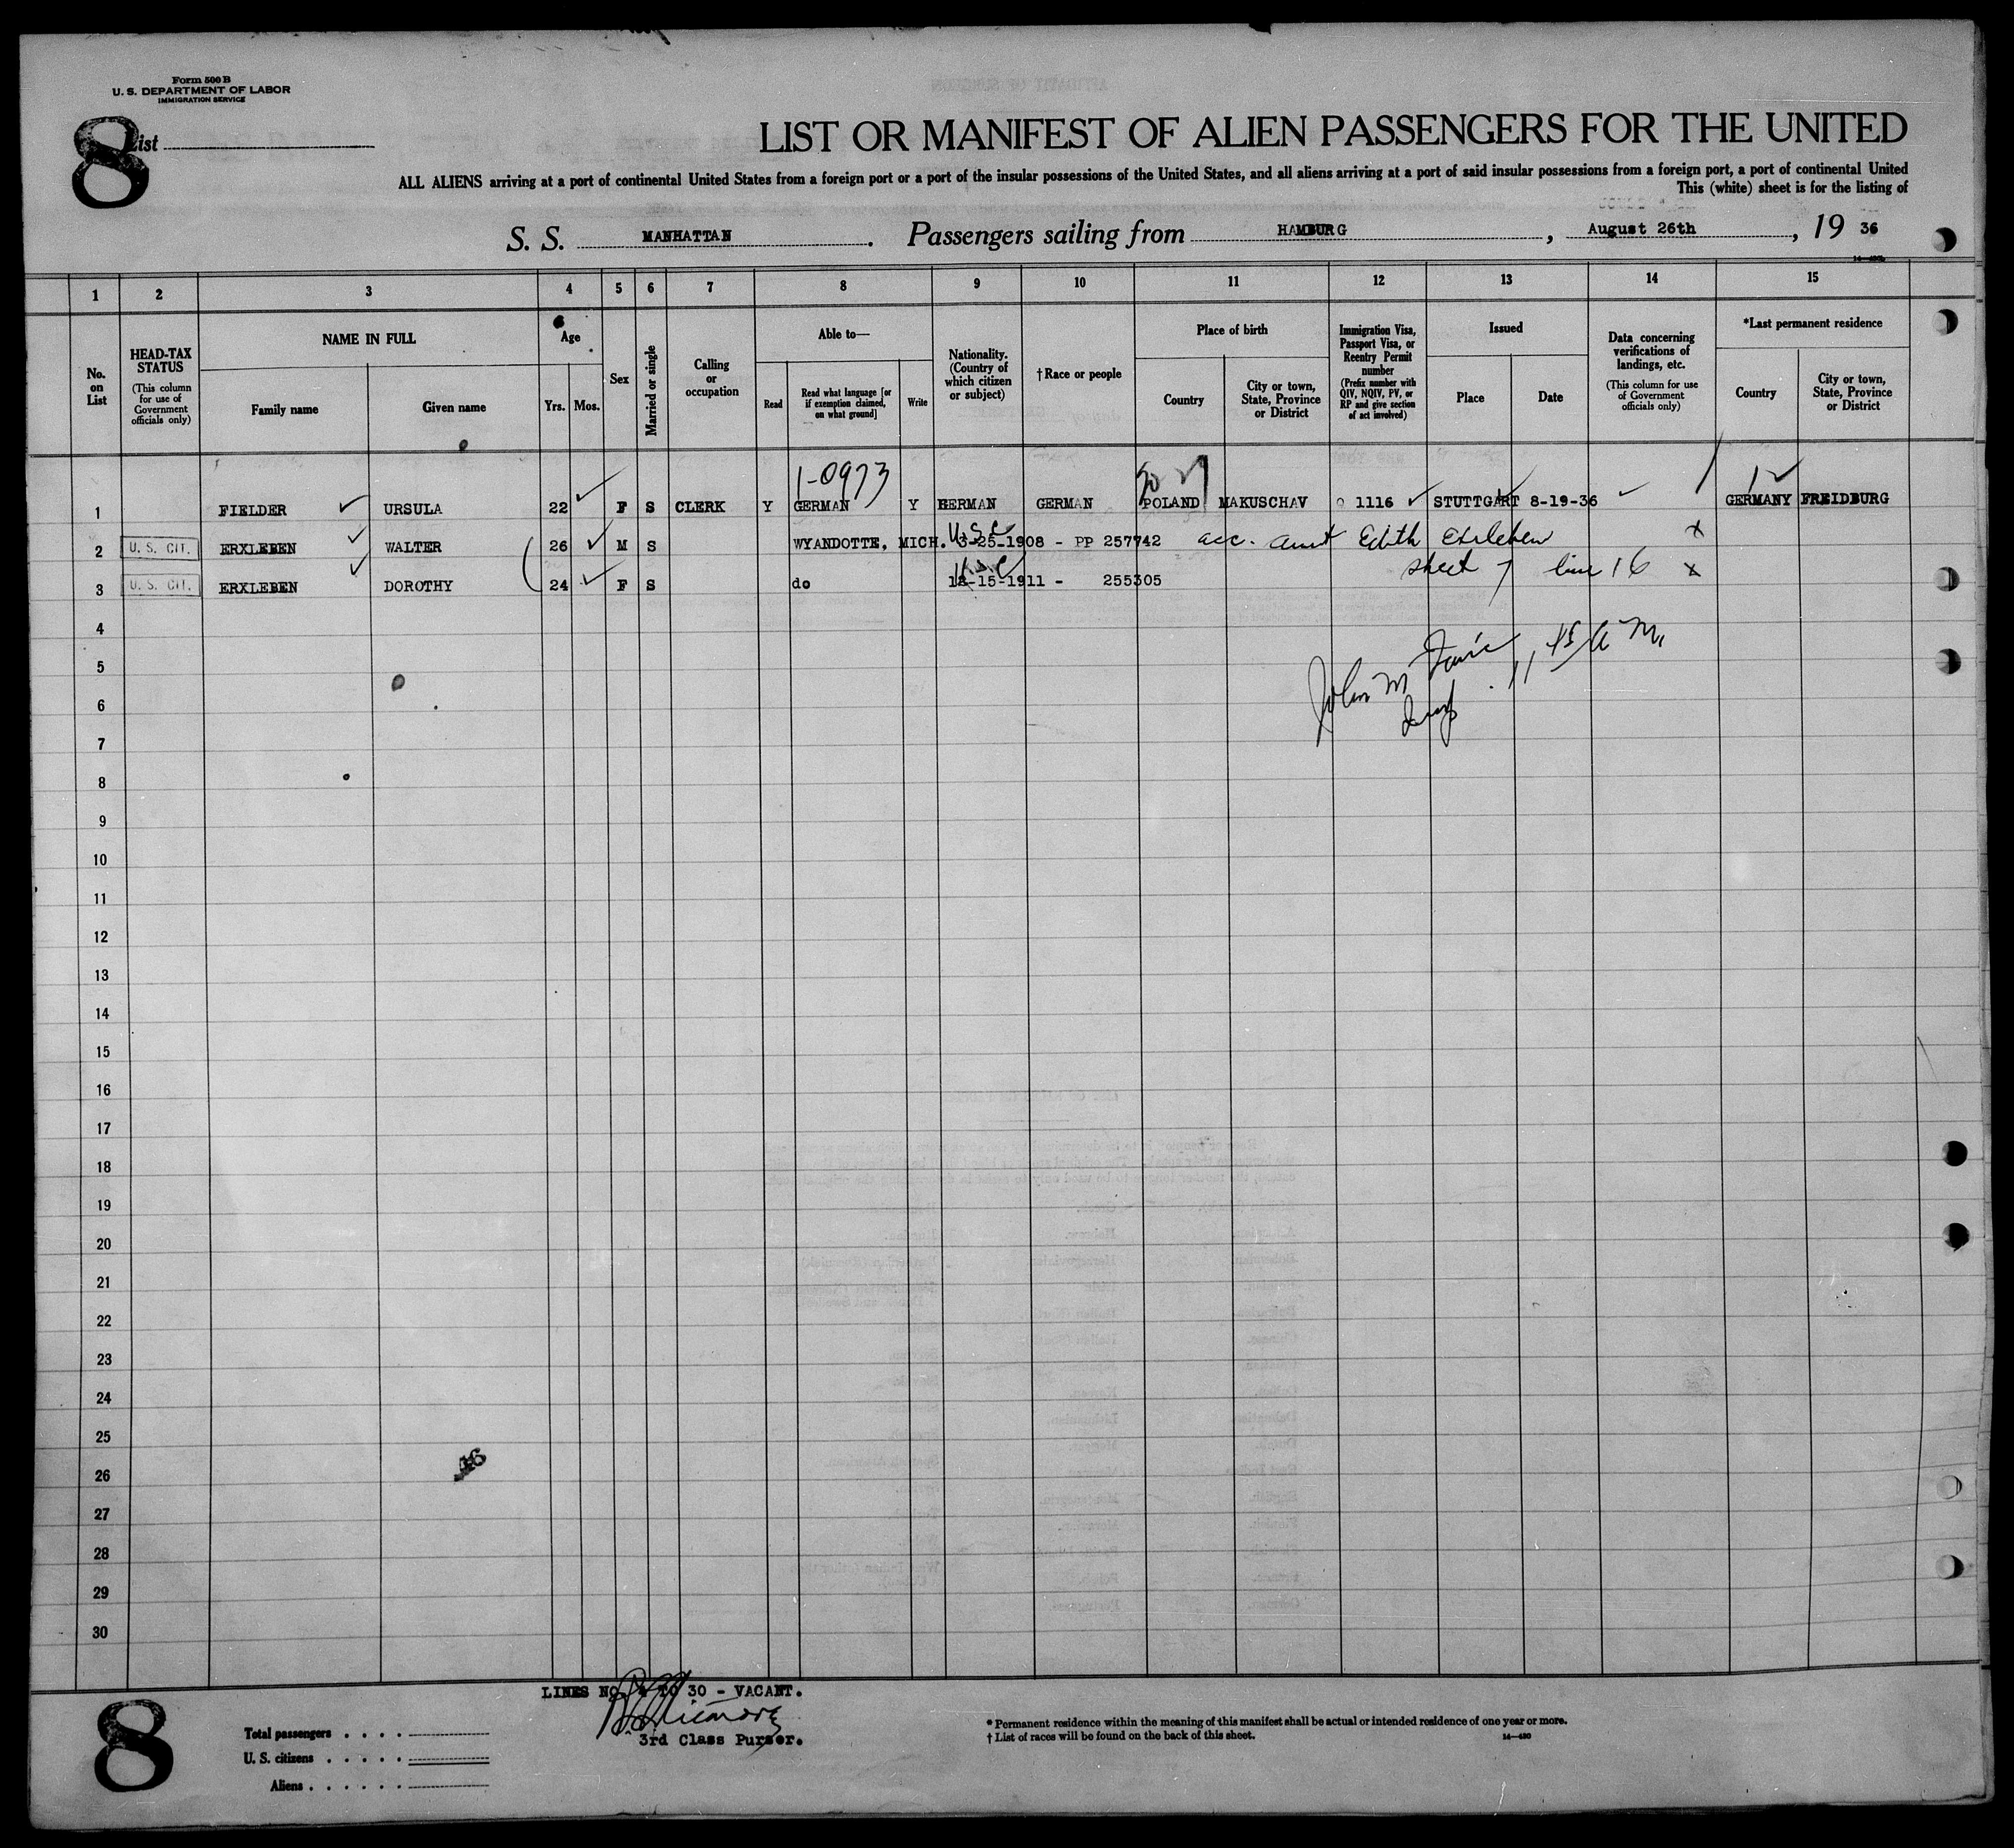 Form 500 B
U. S. DEPARTMENT OF LABOR
IMMIGRATION SERVICE
8
List
LIST OR MANIFEST OF ALIEN PASSENGERS FOR THE UNITED
ALL ALIENS arriving at a port of continental United States from a foreign port or a port of the insular possessions of the United States, and all aliens arriving at a port of said insular possessions from a foreign port, a port of continental United
This (white) sheet is for the listing of
S. S. MANHATTAN. Passengers sailing from HAMBURG, August 26th, 19 36
1 2 3 4 5 6 7 8 9 10 11 12 13 14 15
No. on List
HEAD-TAX STATUS
(This column for use of Government officials only)
NAME IN FULL
Family name
Given name
Age
Yrs. Mos.
Sex
Married or single
Calling or occupation
Able to—
Read
Read what language [or if exemption claimed, on what ground]
Write
Nationality. (Country of which citizen or subject)
†Race or people
Place of birth
Country
City or town, State, Province or District
Immigration Visa, Passport Visa, or Reentry Permit number
(Prefix number with QIV, NQIV, PV, or RP and give section of act involved)
Issued
Place
Date
Data concerning verifications of landings, etc.
(This column for use of Government officials only)
*Last permanent residence
Country
City or town, State, Province or District
1-0973
1 FIELDER URSULA 22 F S CLERK Y GERMAN Y GERMAN GERMAN POLAND MAKUSCHAV 1116 STUTTGART 8-19-36 GERMANY FREIDBURG
U.S.C
2 U. S. CIT. ERXLEBEN WALTER 26 M S WYANDOTTE, MICH. 3-25-1908 - PP 257742 acc. aunt Edith Erxleben x
U.S.C
sheet 7 line 16 x
3 U. S. CIT. ERXLEBEN DOROTHY 24 F S do 12-15-1911 - 255305
4
John M 11 45 A M.
5
6
Insp
7
8
9
10
11
12
13
14
15
16
17
18
19
20
21
22
23
24
25
26
27
28
29
30
LINES NO. 4 TO 30 - VACANT.
3rd Class Purser.
8
Total passengers . . . .
U. S. citizens . . . . .
Aliens . . . . . .
* Permanent residence within the meaning of this manifest shall be actual or intended residence of one year or more.
† List of races will be found on the back of this sheet.
14—430